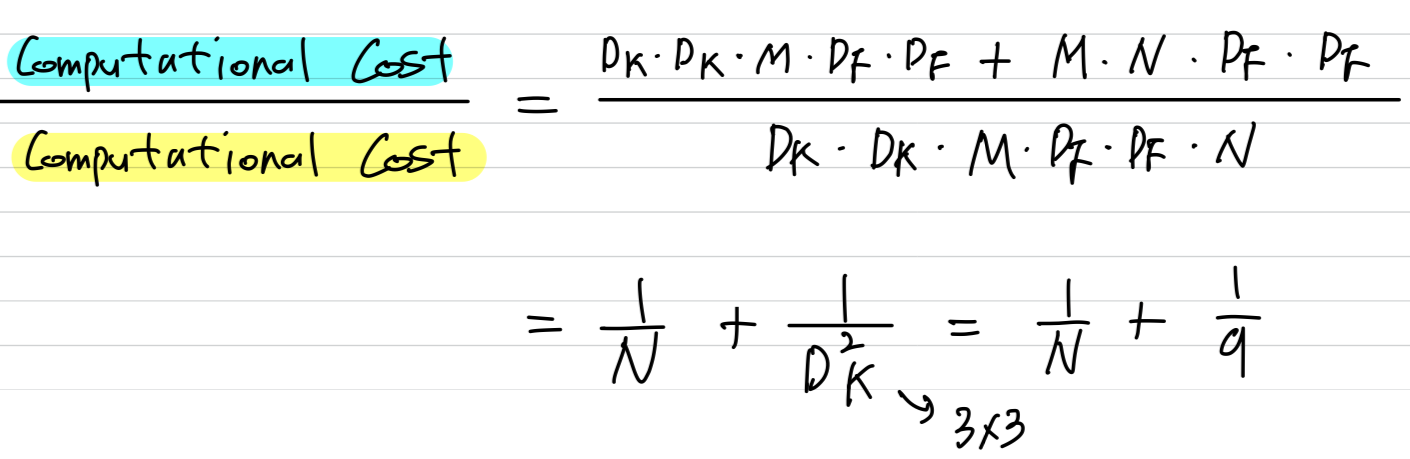 Computational Cost / Computational Cost = (DK · DK · M · DF · DF + M · N · DF · DF) / (DK · DK · M · DF · DF · N)
= 1/N + 1/D²K = 1/N + 1/9
↘ 3×3